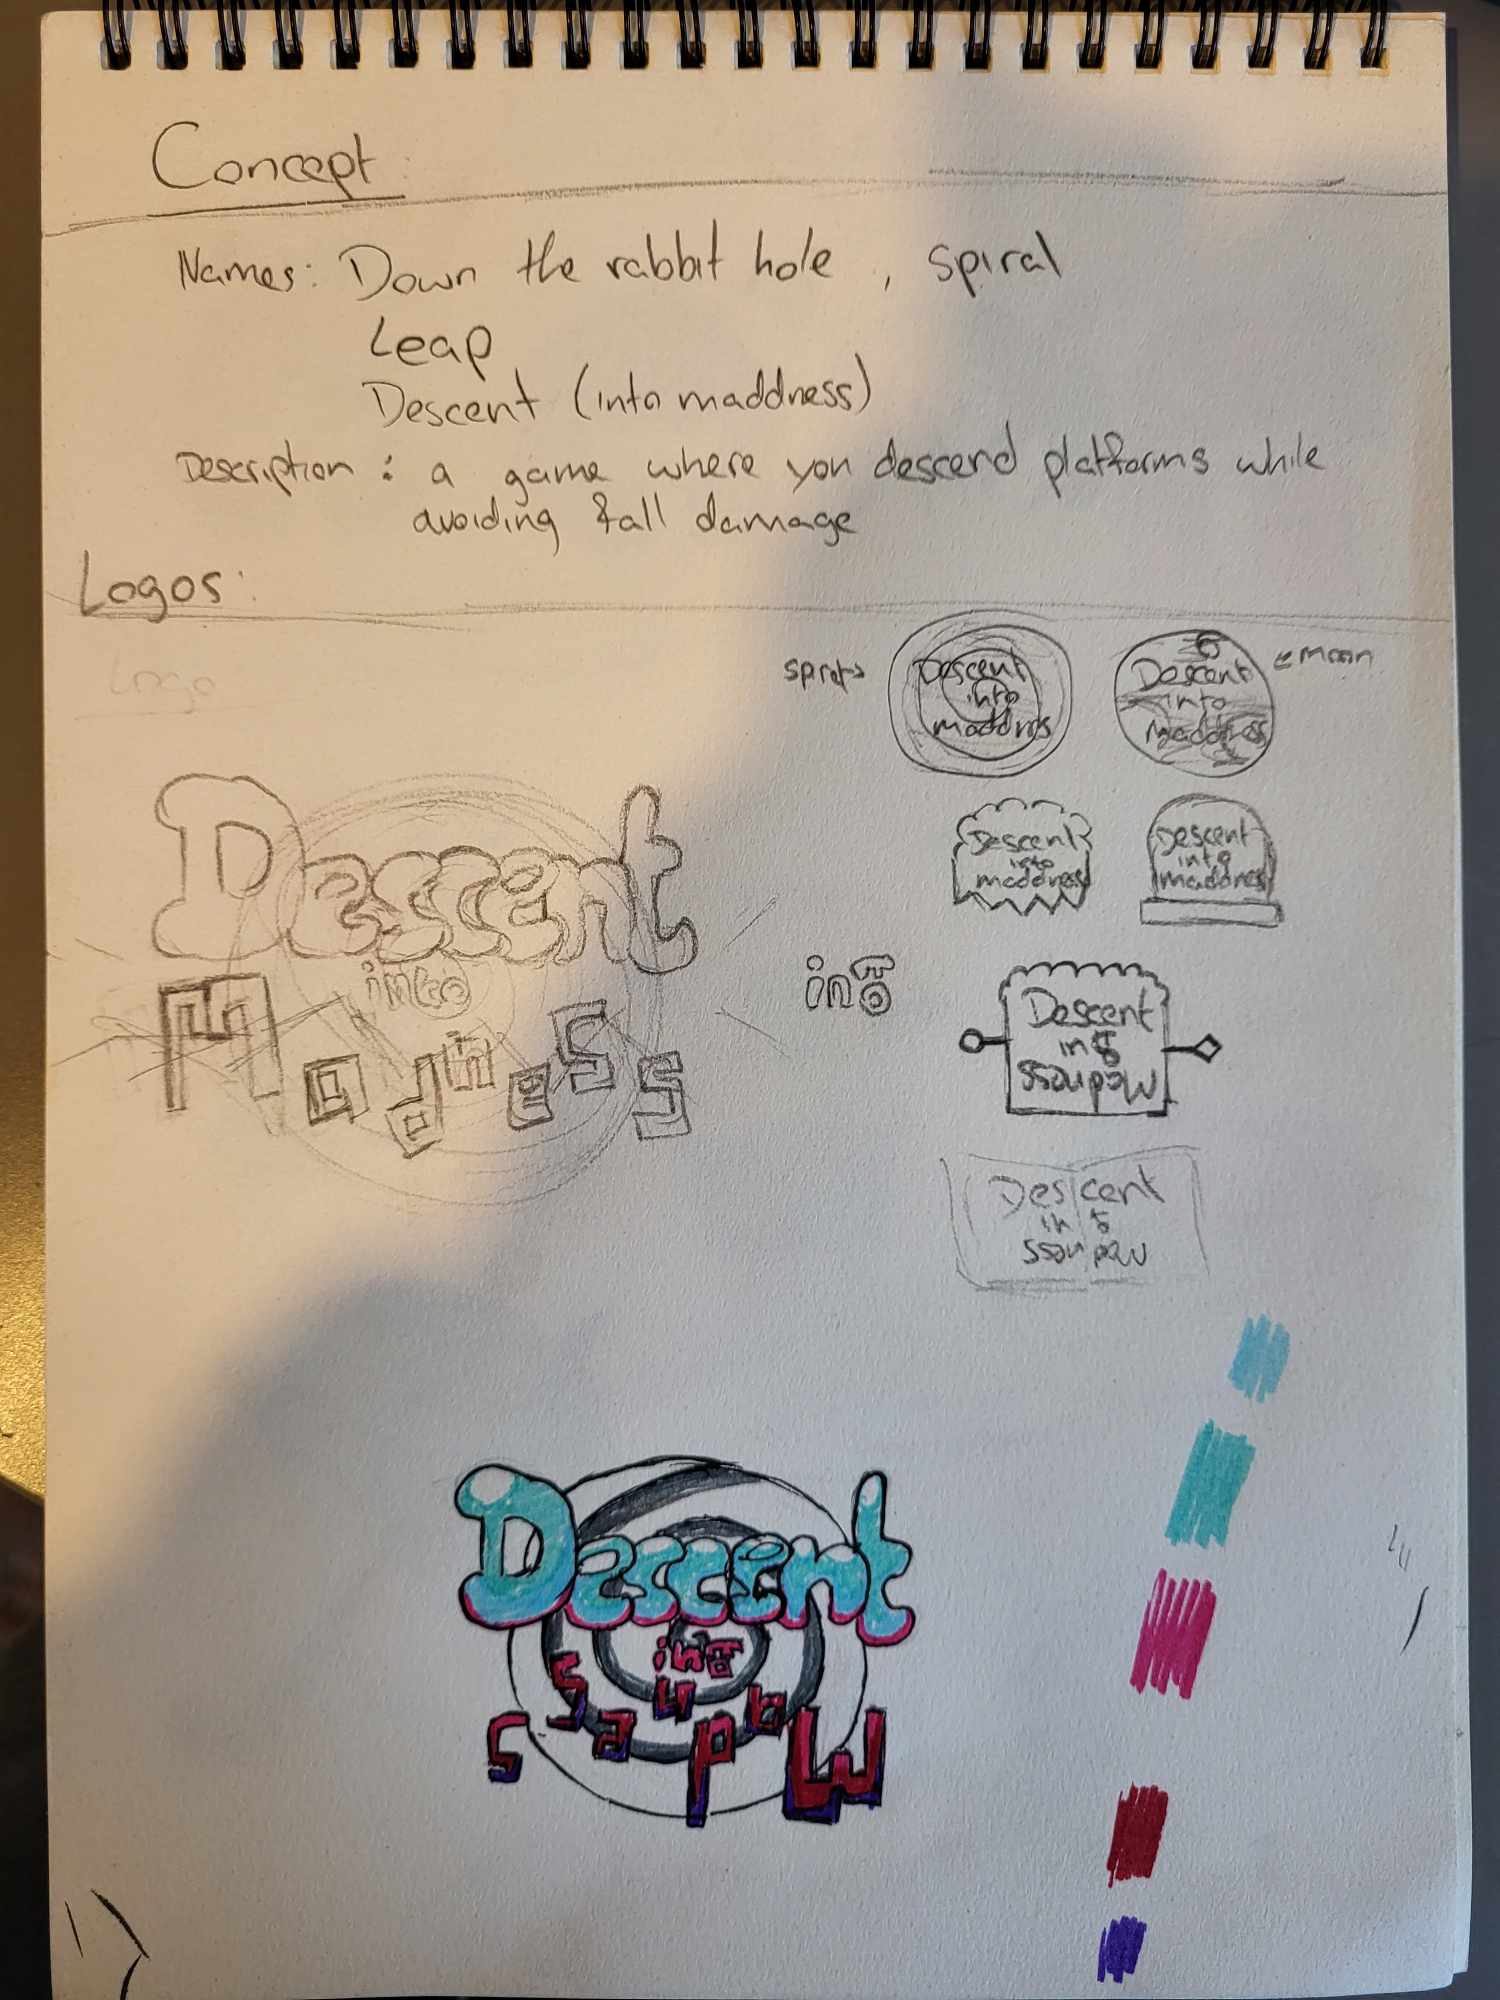 Concept:
Names: Down the rabbit hole, spiral
Leap
Descent (into maddness)
Description: a game where you descend platforms while
avoiding fall damage
Logos:
Logo
Descent
into
maddnes
←moon
Descent
into
maddness
Descent
into
Madness
Descent
into
maddness
Descent
into
maddness
into
Descent
into
Madness
Descent
into
Madness
Descent
into
Madness